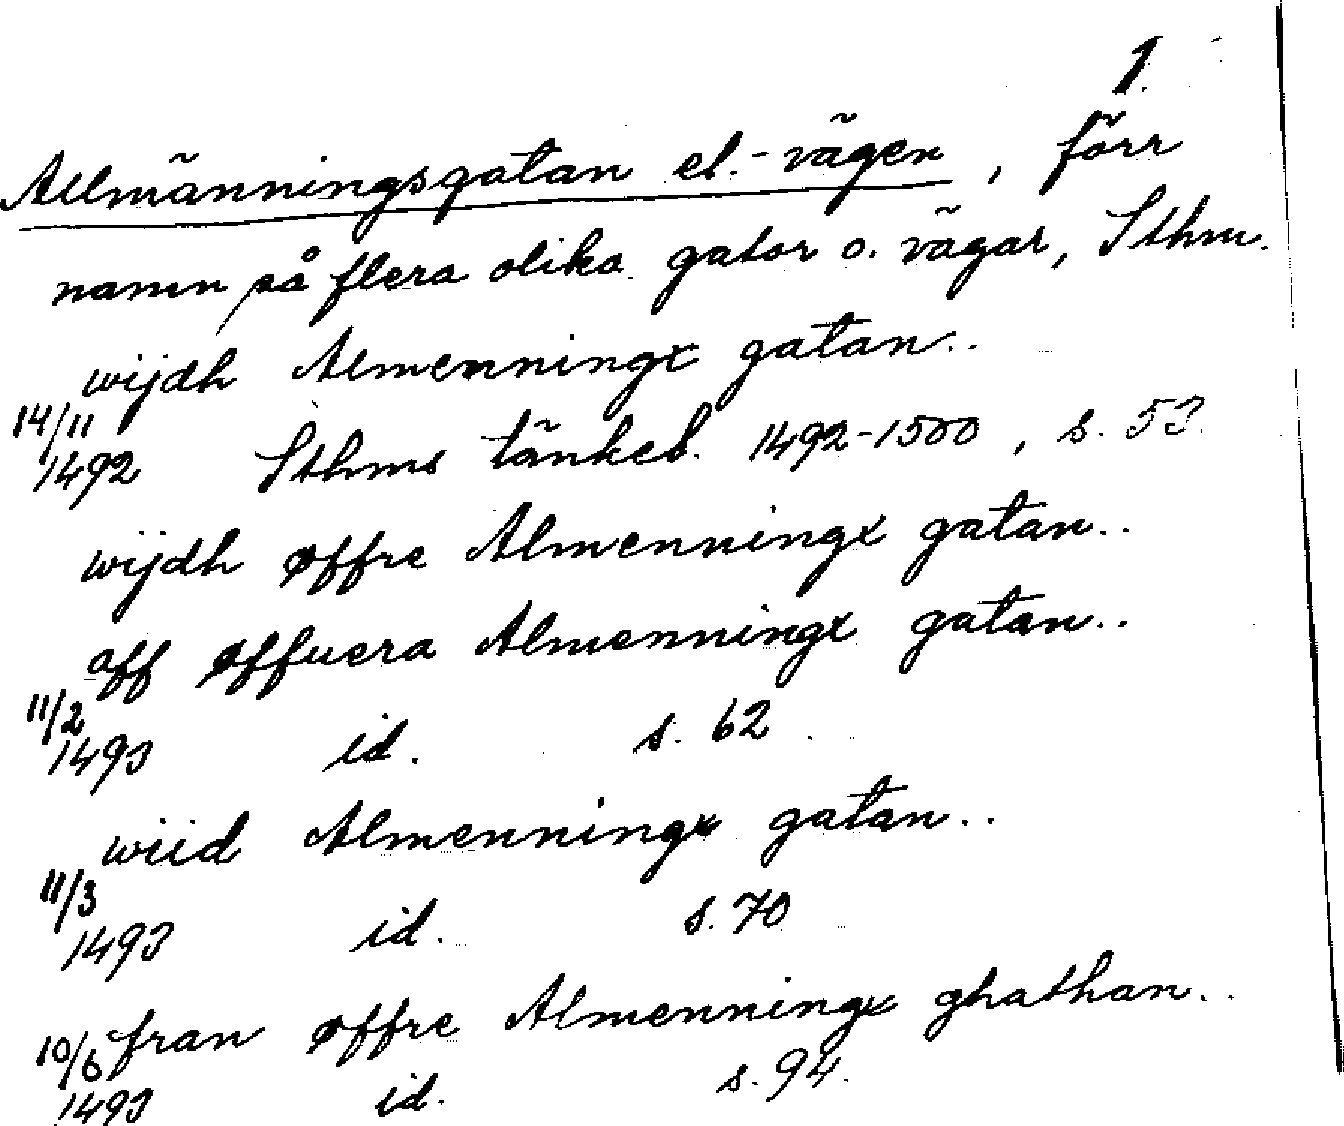 1.
Allmänningsgatan el. -vägen, förr
namn på flera olika gator o. vägar, Sthm.
wijdh Almenningx gatan..
14/11
1492 Sthms tänkeb. 1492-1500, s. 53.
wijdh øffre Almenningx gatan..
aff øffuera Almenningx gatan..
11/2
1493 id. s. 62
wiid Almenningx gatan..
11/3
1493 id. s. 70
10/6 fran øffre Almenningx ghathan..
1493 id. s. 94.